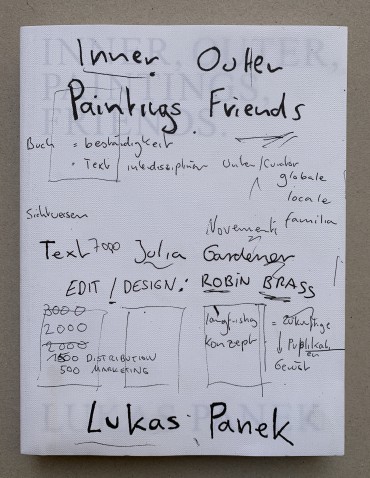 INNER, OUTER,
PAINTINGS,
FRIENDS.
Inner Outer
Paintings Friends
Buch = beständigkeit
• Text interdisziplinär Unter/Curator
globale
locale
familia
Text 7000 Julia Gardener
EDIT / DESIGN: ROBIN BRASS
3000
2000
2000
1500 DISTRIBUTION
500 MARKETING
langfristig
konzept
= zukünftige
↓ Publikation
Gewält
Lukas Panek
LUKAS PANEK